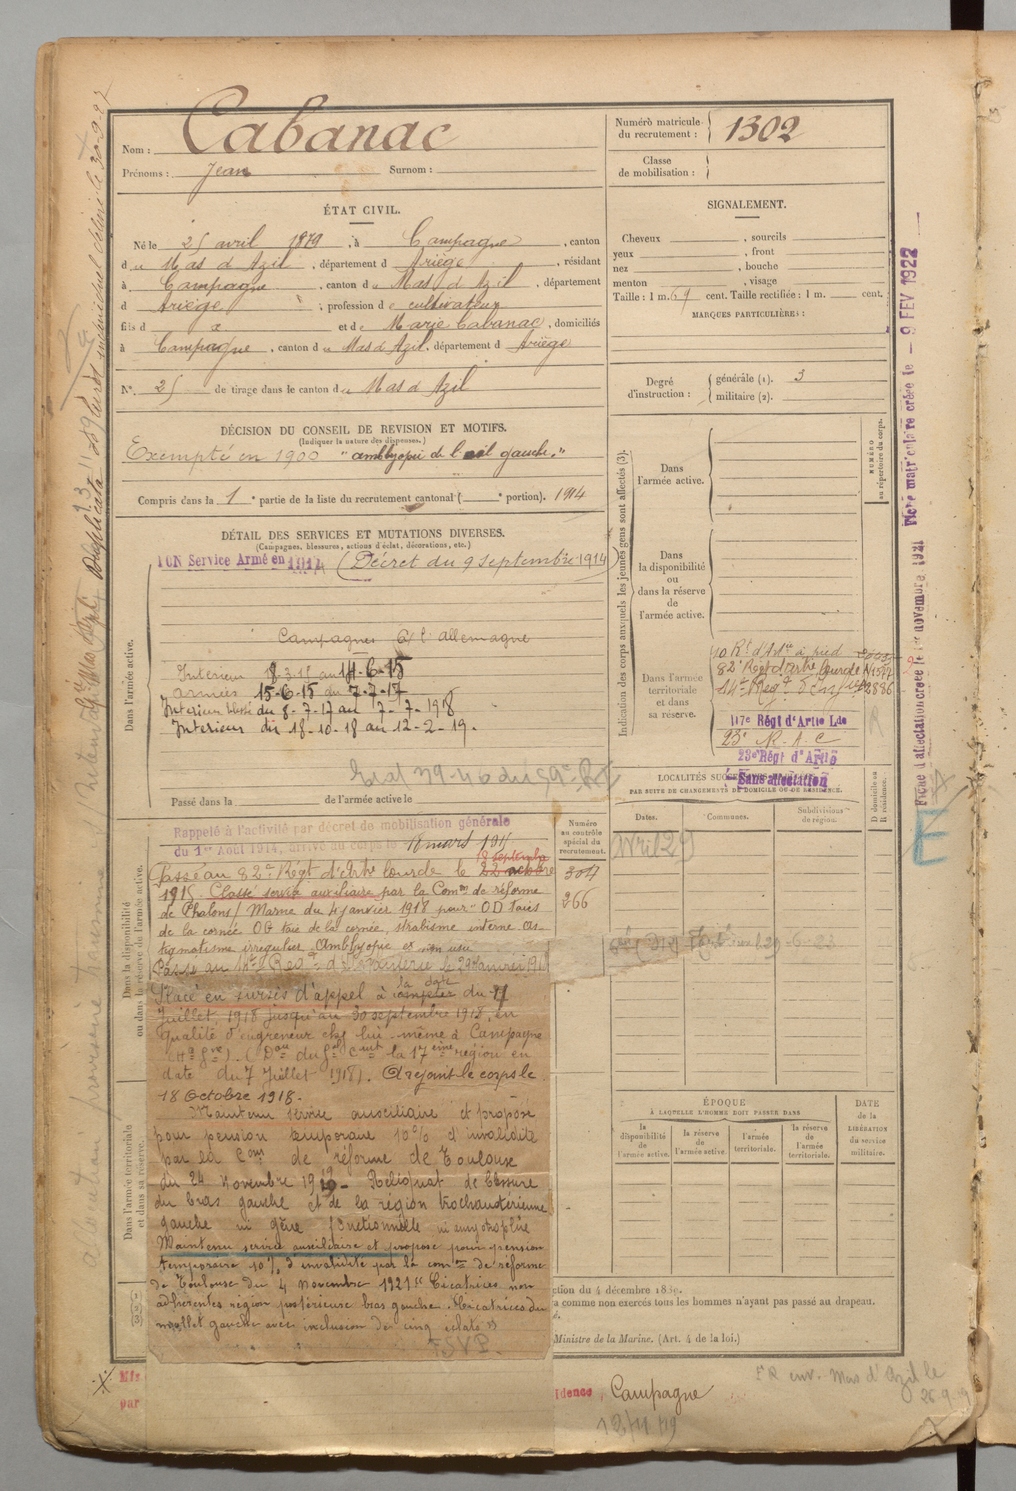 Nom : Cabanac
Prénoms : Jean Surnom :
Numéro matricule du recrutement : 1302
Classe de mobilisation :
ÉTAT CIVIL.
Né le 25 avril 1879, à Campagne, canton
du Mas d'Azil, département d Ariège, résidant
à Campagne, canton du Mas d'Azil, département
d Ariège, profession de cultivateur
fils d x et de Marie Cabanac, domiciliés
à Campagne, canton du Mas d'Azil, département d Ariège
N° 25 de tirage dans le canton du Mas d'Azil
SIGNALEMENT.
Cheveux , sourcils
yeux , front
nez , bouche
menton , visage
Taille : 1 m. 69 cent. Taille rectifiée : 1 m. cent.
MARQUES PARTICULIÈRES :
Degré d'instruction : générale (1). 3
militaire (2).
DÉCISION DU CONSEIL DE REVISION ET MOTIFS.
(Indiquer la nature des dispenses.)
Exempté en 1900 "amblyopie de l'œil gauche."
Compris dans la 1e partie de la liste du recrutement cantonal ( e portion). 1914
DÉTAIL DES SERVICES ET MUTATIONS DIVERSES.
(Campagnes, blessures, actions d'éclat, décorations, etc.)
BON Service Armé en 1914 (Décret du 9 septembre 1914)
Dans l'armée active.
Campagnes C/ l'allemagne
Intérieur 18-3-15 au 14-6-15
armées 15-6-15 au 7-7-17
Intérieur blessé du 8-7-17 au 7-7-1918
Intérieur du 18-10-18 au 12-2-19.
Passé dans la de l'armée active le
Indication des corps auxquels les jeunes gens sont affectés (3).
Dans l'armée active.
NUMÉRO au répertoire du corps.
Dans la disponibilité ou dans la réserve de l'armée active.
Dans l'armée territoriale et dans sa réserve.
10 Rt d'Artie à pied
82e Régt d'artie lourde
14e Régt d'Infie
117e Régt d'Artie Lde
23e R.A.C
23e Régt d'Artie
Sans affectation
LOCALITÉS SUCCESSIVES
PAR SUITE DE CHANGEMENTS DE DOMICILE OU DE RÉSIDENCE.
D domicile ou R résidence.
Dates. Communes. Subdivisions de région.
Numéro au contrôle spécial du recrutement.
304
266
Dans la disponibilité ou dans la réserve de l'armée active.
Rappelé à l'activité par décret de mobilisation générale
du 1er Août 1914, arrivé au corps le 18 mars 1915
Passé au 82e Régt d'Artie lourde le 22 octobre 18 septembre
1915. Classé service auxiliaire par la Comon de réforme
de Chalons/Marne du 4 janvier 1918 pour "OD taies
de la cornée OG taie de la cornée, strabisme interne as-
tigmatisme irrégulier. Amblyopie ex non usu
Passé au 14e Régt d'Infanterie le 29 janvier 1918
Placé en sursis d'appel à compter la date du 7
Juillet 1918 jusqu'au 30 septembre 1918, en
qualité d'engreneur chez lui-même à Campagne
(Hte Gne). (Don du Gal Ct la 17ème région en
date du 7 Juillet 1918). A rejoint le corps le
18 octobre 1918.
Maintenu service auxiliaire et proposé
pour pension temporaire 10% d'invalidité
par la Comon de réforme de Toulouse
du 24 Novembre 1919 - Reliquat de blessure
du bras gauche et de la région trochantérienne
gauche ni gêne fonctionnelle ni amyotrophie
Maintenu service auxiliaire et proposé pour pension
temporaire 10% d'invalidité par la comon de réforme
de Toulouse du 4 novembre 1921 "Cicatrices non
adhérentes région postérieure bras gauche. Cicatrices du
mollet gauche avec inclusion de cinq éclats"
TSVP.
Dans l'armée territoriale et dans sa réserve.
ÉPOQUE
À LAQUELLE L'HOMME DOIT PASSER DANS
la disponibilité de l'armée active. la réserve de l'armée active. l'armée territoriale. la réserve de l'armée territoriale.
DATE de la LIBÉRATION du service militaire.
ction du 4 décembre 1889.
a comme non exercés tous les hommes n'ayant pas passé au drapeau.
Ministre de la Marine. (Art. 4 de la loi.)
Mis
par
idence Campagne
FR env. Mas d'Azil le
Fiche matriculaire créée le - 9 FEV 1922
Fiche d'affectation créée le 1er novembre 1921
E